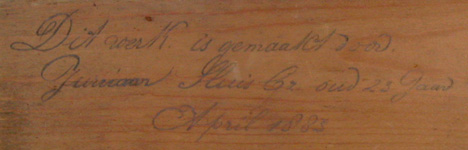 Dit werk. is gemaakt door.
Juriaan Sluis Cz oud 22 Jaar
April 1883